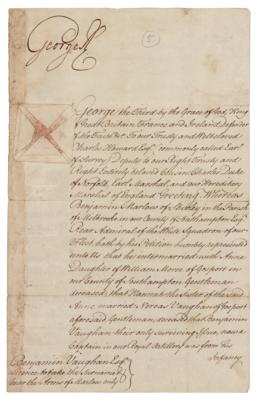 George R
5
George the Third by the Grace of God, King
of Great Britain France and Ireland, Defender
of the Faith &c To our Trusty and Welbeloved
Charles Howard Esqr. commonly called Earl
of Surrey Deputy to our Right Trusty and
Right Entirely beloved Cousin Charles Duke
of Norfolk Earl Marshal and our Hereditary
Marshal of England Greeting. Whereas
Benjamin Marlow of in the Parish
of Milbrooke in our County of Southampton Esqr
Rear Admiral of the White Squadron of our
Fleet hath by his Petition humbly represented
unto Us that he intermarried with Anne
Daughter of William Morce of Gosport in
our County of Southampton Gentleman
deceased that Hannah the Sister of the said
Anne married Vaughan of Gosport
aforesaid Gentleman, deceased that Benjamin
Vaughan their only surviving Issue, now a
Captain in our Royal was from his
Infancy
Benjamin Vaughan Esqr
Licence to take the Surname &
bear the Arms of Marlow only